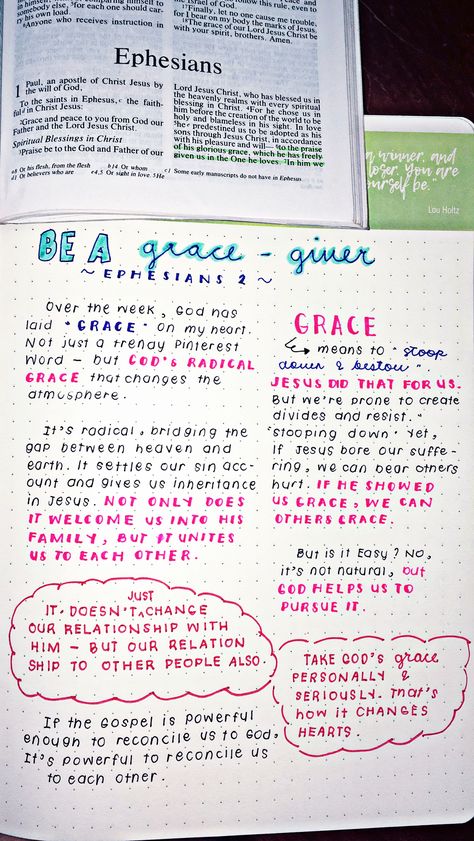 himself, comparing himself to
somebody else, ⁵for each one should car-
ry his own load.
⁶Anyone who receives instruction in
the Israel of God.
¹⁷Finally, let no one cause me trouble,
for I bear on my body the marks of Jesus.
¹⁸The grace of our Lord Jesus Christ be
with your spirit, brothers. Amen.
Ephesians
1 Paul, an apostle of Christ Jesus by
the will of God,
To the saints in Ephesus, the faith-
ful in Christ Jesus:
²Grace and peace to you from God our
Father and the Lord Jesus Christ.
Spiritual Blessings in Christ
³Praise be to the God and Father of our
Lord Jesus Christ, who has blessed us in
the heavenly realms with every spiritual
blessing in Christ. ⁴For he chose us in
him before the creation of the world to be
holy and blameless in his sight. In love
he predestined us to be adopted as his
sons through Jesus Christ, in accordance
with his pleasure and will— ⁶to the praise
of his glorious grace, which he has freely
given us in the One he loves. ⁷In him we
a8 Or his flesh, from the flesh b14 Or whom c1 Some early manuscripts do not have in Ephesus.
d1 Or believers who are e4,5 Or sight in love. ⁵He
a winner, and
loser. You are
yourself be."
Lou Holtz
BE A grace - giver
~ EPHESIANS 2 ~
Over the week, God has
laid "GRACE" on my heart.
Not just a trendy Pinterest
Word - but GOD'S RADICAL
GRACE that changes the
atmosphere.
It's radical, bridging the
gap between heaven and
earth. It settles our sin acc-
ount and gives us inheritance
in Jesus. NOT ONLY DOES
IT WELCOME US INTO HIS
FAMILY, BUT IT UNITES
US TO EACH OTHER.
JUST
IT. DOESN'T ^ CHANGE
OUR RELATIONSHIP WITH
HIM - BUT OUR RELATION
SHIP TO OTHER PEOPLE ALSO.
If the Gospel is powerful
enough to reconcile us to God,
It's powerful to reconcile us
to each other.
GRACE
↳ means to "stoop
down & bestow".
JESUS DID THAT FOR US.
But we're prone to create
divides and resist "
stooping down" Yet,
if Jesus bore our suffe-
ring, we can bear others
hurt. IF HE SHOWED
US GRACE, WE CAN
OTHERS GRACE.
But is it Easy? No,
it's not natural, but
GOD HELPS US TO
PURSUE IT.
TAKE GOD'S grace
PERSONALLY &
SERIOUSLY. That's
how it CHANGES
HEARTS.